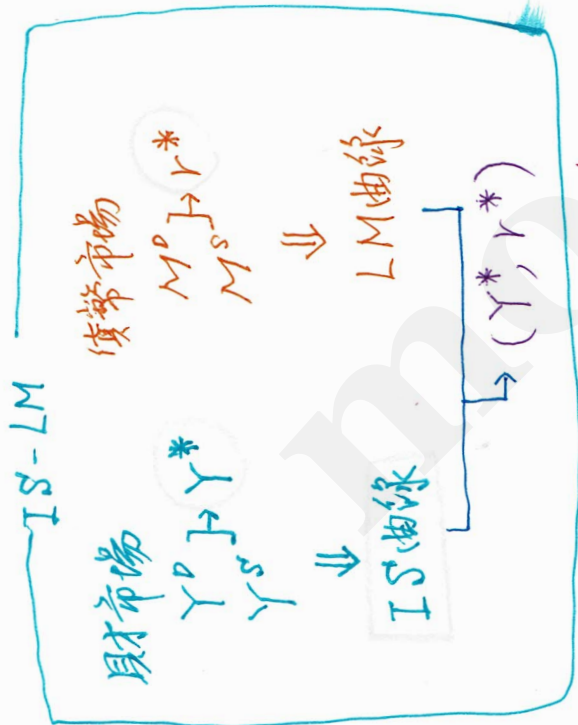 IS-LM
財市場
Y^D
Y^S
Y*
⇓
IS曲線
貨幣市場
M^D
M^S
r*
⇓
LM曲線
(Y*, r*)